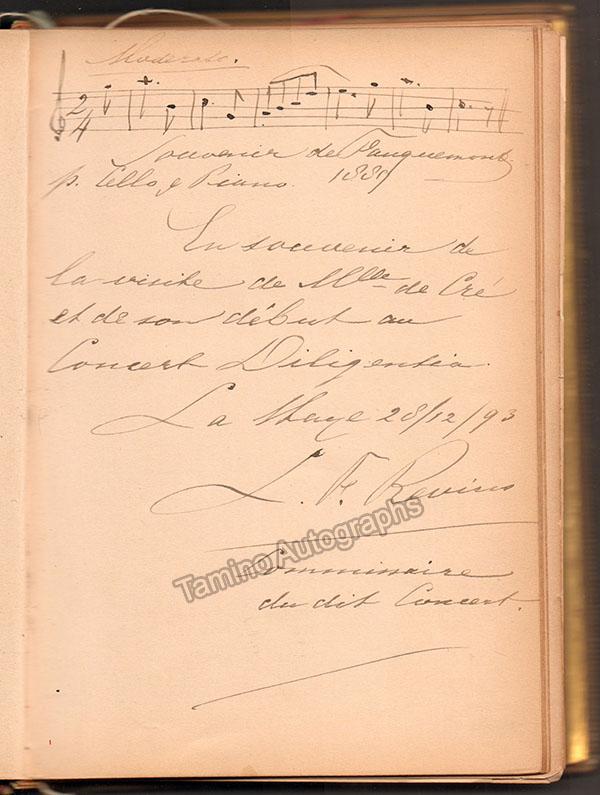 Moderato.
2/4
Souvenir de Fauquemont
p. Cello & Piano. 1889
En souvenir de
la visite de Mlle de Cré
et de son début au
Concert Diligentia.
La Haye 28/12/93
L. F. Revius
Tamino Autographs
Commissaire
du dit Concert.